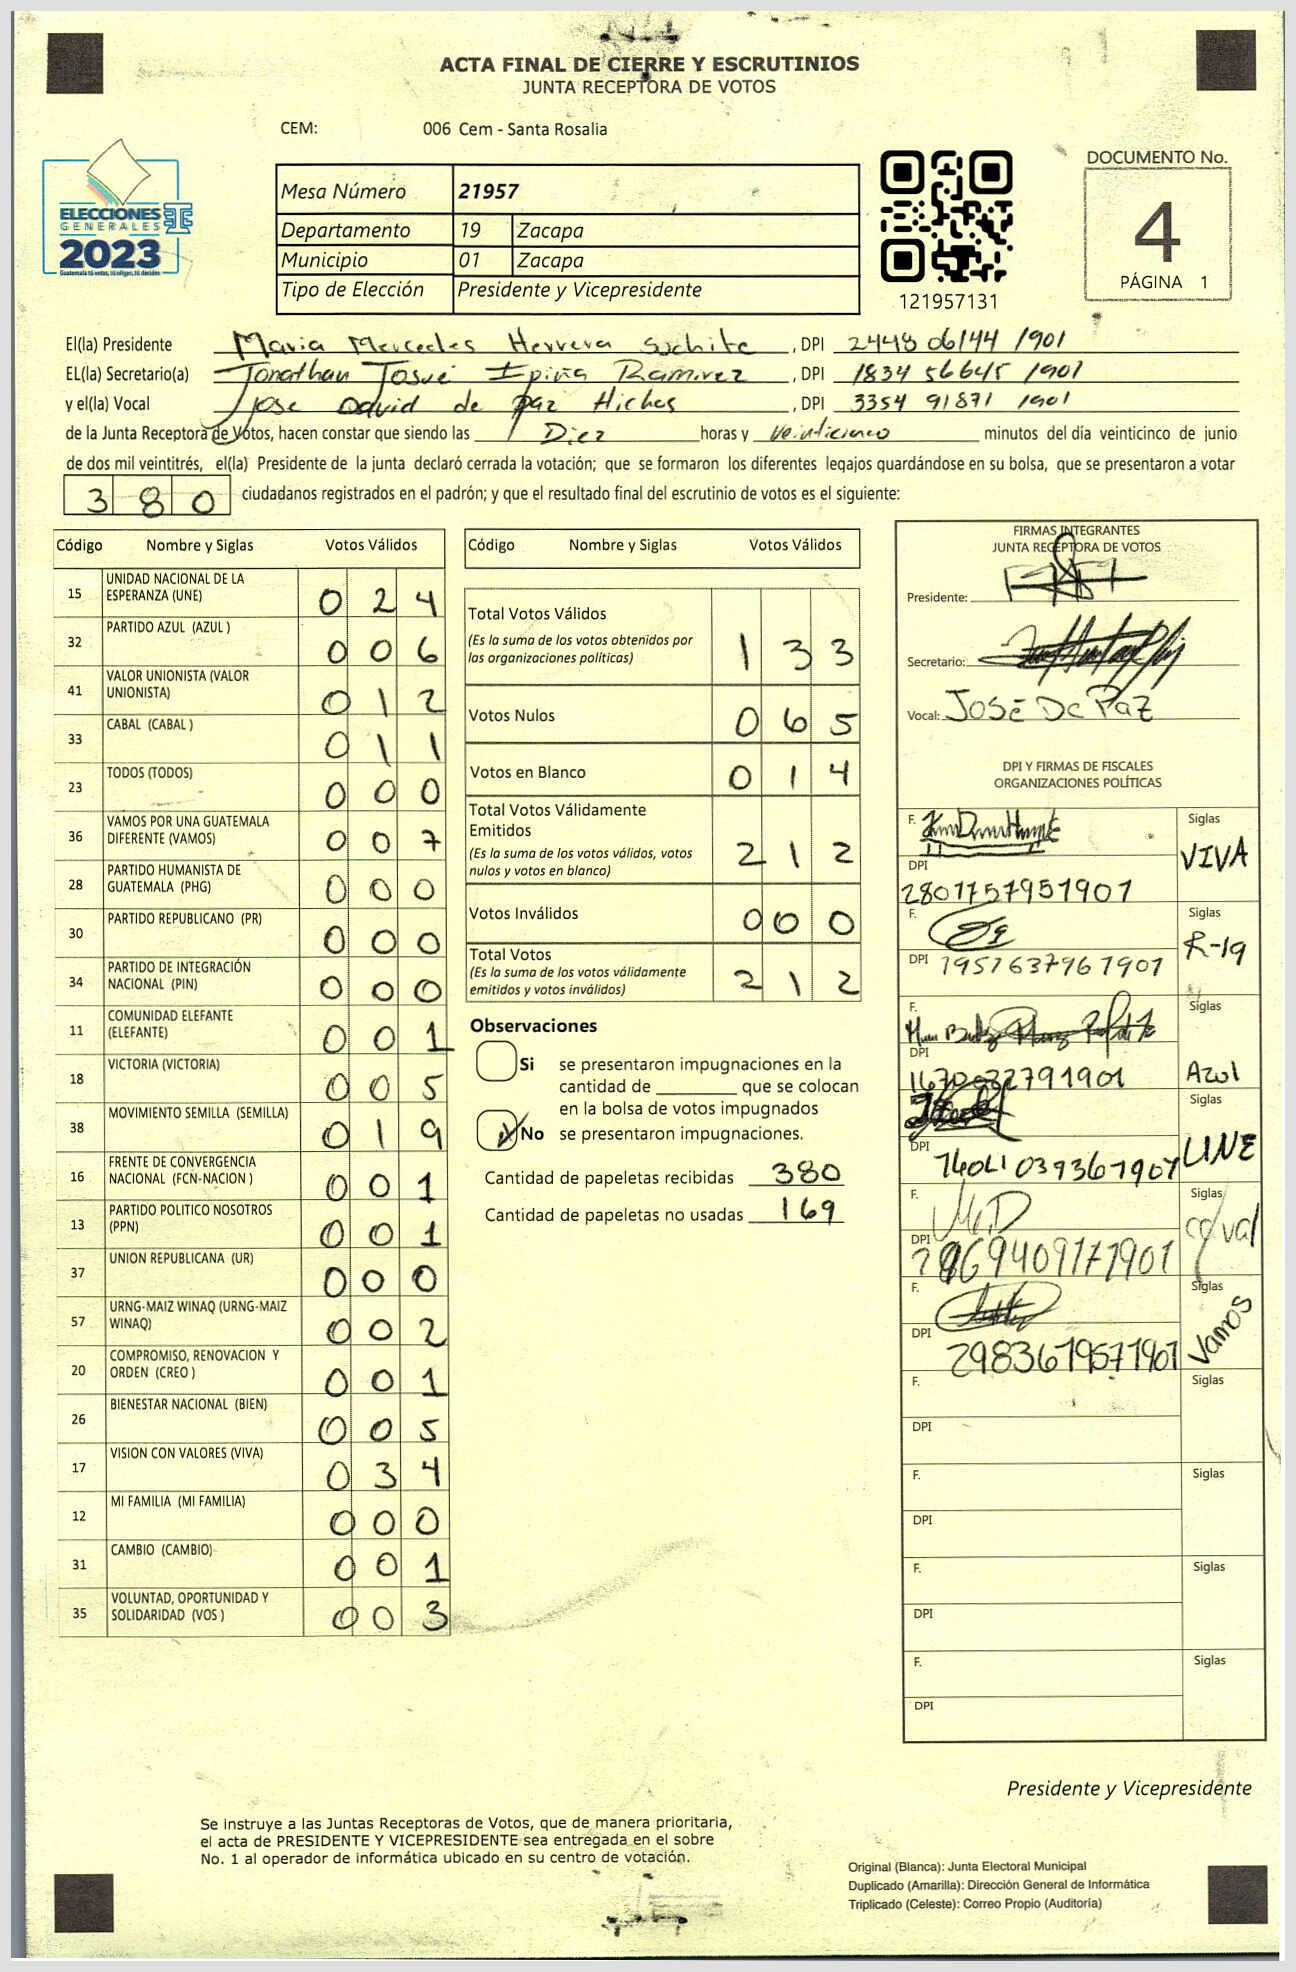 ACTA FINAL DE CIERRE Y ESCRUTINIOS
JUNTA RECEPTORA DE VOTOS
CEM: 006 Cem - Santa Rosalia
ELECCIONES
GENERALES
2023
Guatemala tú votas, tú eliges, tú decides
Mesa Número 21957
Departamento 19 Zacapa
Municipio 01 Zacapa
Tipo de Elección Presidente y Vicepresidente
121957131
DOCUMENTO No.
4
PÁGINA 1
El(la) Presidente Maria Mercedes Herrera Suchite, DPI 2448 06144 1901
EL(la) Secretario(a) Jonathan Josué Ipiña Ramirez, DPI 1834 56645 1901
y el(la) Vocal Jose David de paz Hichos, DPI 3354 91871 1901
de la Junta Receptora de Votos, hacen constar que siendo las Diez horas y veinticinco minutos del día veinticinco de junio
de dos mil veintitrés, el(la) Presidente de la junta declaró cerrada la votación; que se formaron los diferentes legajos quardándose en su bolsa, que se presentaron a votar
380 ciudadanos registrados en el padrón; y que el resultado final del escrutinio de votos es el siguiente:
Código Nombre y Siglas Votos Válidos
15 UNIDAD NACIONAL DE LA ESPERANZA (UNE) 024
32 PARTIDO AZUL (AZUL ) 006
41 VALOR UNIONISTA (VALOR UNIONISTA) 012
33 CABAL (CABAL ) 011
23 TODOS (TODOS) 000
36 VAMOS POR UNA GUATEMALA DIFERENTE (VAMOS) 007
28 PARTIDO HUMANISTA DE GUATEMALA (PHG) 000
30 PARTIDO REPUBLICANO (PR) 000
34 PARTIDO DE INTEGRACIÓN NACIONAL (PIN) 000
11 COMUNIDAD ELEFANTE (ELEFANTE) 001
18 VICTORIA (VICTORIA) 005
38 MOVIMIENTO SEMILLA (SEMILLA) 019
16 FRENTE DE CONVERGENCIA NACIONAL (FCN-NACION ) 001
13 PARTIDO POLITICO NOSOTROS (PPN) 001
37 UNION REPUBLICANA (UR) 000
57 URNG-MAIZ WINAQ (URNG-MAIZ WINAQ) 002
20 COMPROMISO, RENOVACION Y ORDEN (CREO ) 001
26 BIENESTAR NACIONAL (BIEN) 005
17 VISION CON VALORES (VIVA) 034
12 MI FAMILIA (MI FAMILIA) 000
31 CAMBIO (CAMBIO) 001
35 VOLUNTAD, OPORTUNIDAD Y SOLIDARIDAD (VOS ) 003
Código Nombre y Siglas Votos Válidos
Total Votos Válidos 133
(Es la suma de los votos obtenidos por
las organizaciones politicas)
Votos Nulos 065
Votos en Blanco 014
Total Votos Válidamente
Emitidos 212
(Es la suma de los votos válidos, votos
nulos y votos en blanco)
Votos Inválidos 000
Total Votos 212
(Es la suma de los votos válidamente
emitidos y votos inválidos)
Observaciones
Si se presentaron impugnaciones en la
cantidad de ________ que se colocan
en la bolsa de votos impugnados
No se presentaron impugnaciones.
Cantidad de papeletas recibidas 380
Cantidad de papeletas no usadas 169
FIRMAS INTEGRANTES
JUNTA RECEPTORA DE VOTOS
Presidente:
Secretario:
Vocal: JOSÉ DE PAZ
DPI Y FIRMAS DE FISCALES
ORGANIZACIONES POLÍTICAS
F. Siglas VIVA
DPI 2801757951901
F. Siglas R-19
DPI 1957637961901
F. Siglas Azul
DPI
Siglas UNE
DPI
F. Siglas
DPI
F. Siglas Vamos
DPI 2983679571901
F. Siglas
DPI
F. Siglas
DPI
F. Siglas
DPI
F. Siglas
DPI
Presidente y Vicepresidente
Se instruye a las Juntas Receptoras de Votos, que de manera prioritaria,
el acta de PRESIDENTE Y VICEPRESIDENTE sea entregada en el sobre
No. 1 al operador de informática ubicado en su centro de votación.
Original (Blanca): Junta Electoral Municipal
Duplicado (Amarilla): Dirección General de Informática
Triplicado (Celeste): Correo Propio (Auditoría)